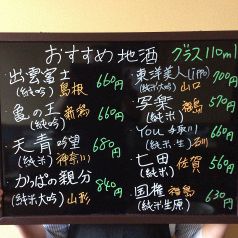 おすすめ地酒 グラス110ml
出雲富士 660円
(純吟) 島根
亀の王 660円
(純吟) 新潟
天青 吟望 680円
(純米) 神奈川
かっぱの親分 840円
(純米大吟) 山形
東洋美人(ippo) 700円
(純米大吟) 山口
写楽 570円
(純米) 福島
you 手取川 660円
(純米・生) 石川
七田 560円
(純米) 佐賀
国権 福島 630円
(純米生原)